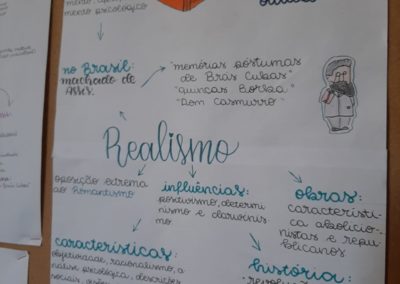 mento psicológico
no Brasil:
machado de
Assis.
"memórias póstumas
de Brás Cubas"
"Quincas Borba"
"Dom Casmurro"
Realismo
oposição extrema
ao Romantismo
influências:
positivismo, determi
nismo e darwinis
mo
obras:
característi
ca abolicio
nistas e repu
blicanos
características:
objetividade, racionalismo, a
nálise psicológica, descrições
sociais
história: